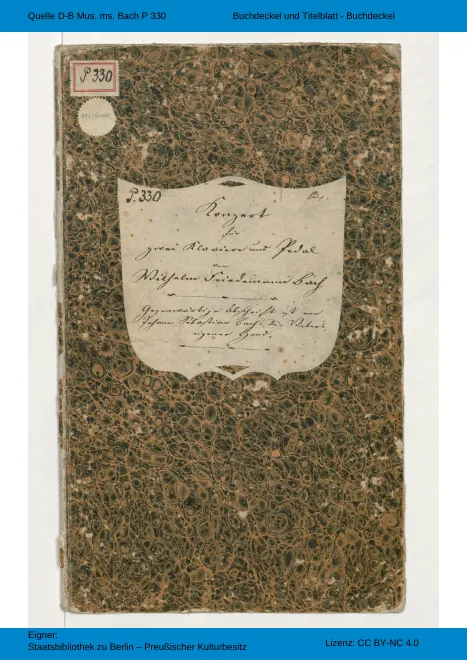 Quelle D-B Mus. ms. Bach P 330
Buchdeckel und Titelblatt - Buchdeckel
P 330
P. 330
Konzert
für
zwei Klaviere und Pedal
von
Wilhelm Friedemann Bach
Gegenwärtige Abschrift ist von
Johann Sebastian Bach, des Vaters
eigener Hand.
Eigner:
Staatsbibliothek zu Berlin – Preußischer Kulturbesitz
Lizenz: CC BY-NC 4.0